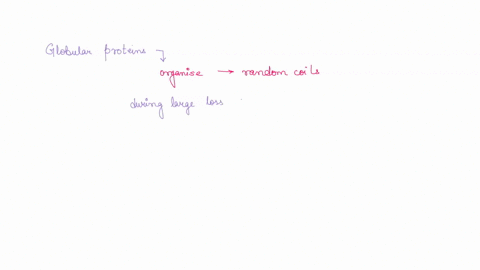 Globular proteins
organise → random coils
during large loss